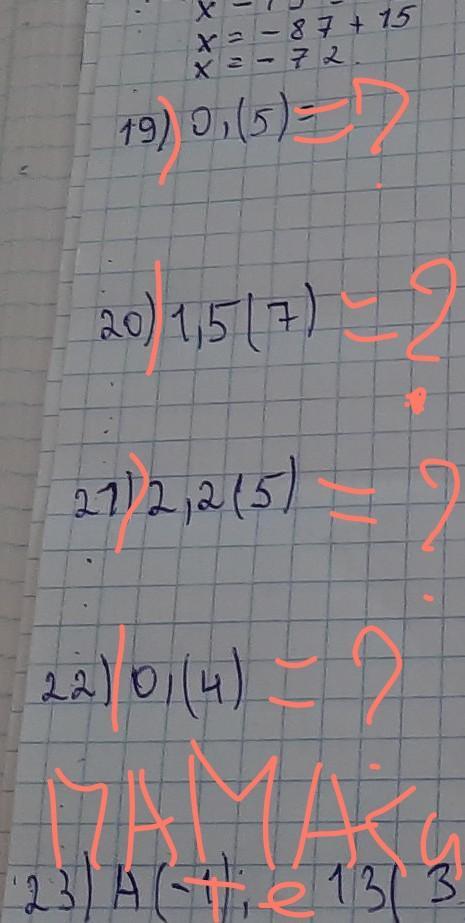 x = -87 + 15
x = -72.
19) 0,(5) = = ?
20) 1,5(7) = ?
21) 2,2(5) = ?
22) 0,(4) = ?
23) A(-1);
13(3